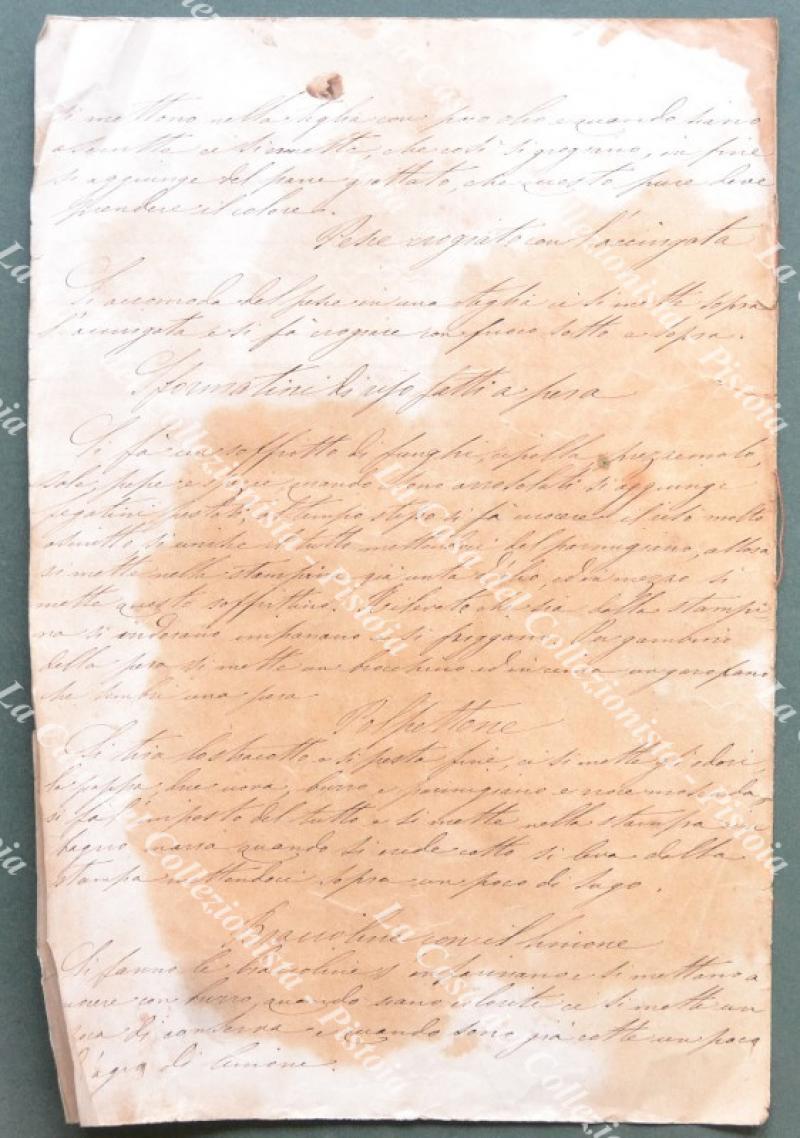 Si mettono nella teglia con poco olio e quando siano
asciutte ci si mette, che così si grogrino, in fine
si aggiunge del pane grattato, che questo pure deve
prendere il colore.
Pesce crogiato con l'acciugata
Si accomoda del pesce in una teglia ci si mette sopra
l'acciugata e si fà crogiare con fuoco sotto e sopra.
Sformatini di riso fatti a pera
Si fà un soffritto di funghi, cipolla, prezzemolo,
sale, pepe e quando sono arrosolati si aggiunge
fegatini pestati, il tempo stesso si fà cuocere il riso molto
asciutto si unisce il tutto mettendovi del parmigiano, allora
si mette nella stampina già unta d'olio, ed in mezzo si
mette questo soffrittino. Rilevato che sia dalla stampi-
na si indorano impanano e si friggano. Per gambino
della pera si mette un brocchino ed in cima un garofano
che sembri una pera
Polpettone
Si trita lo stracotto e si pesta fine, ci si mette gli odori,
la pappa, due uova, burro e parmigiano e noce moscada,
si fà l'imposto del tutto e si mette nella stampa a
bagno maria quando si vede cotto si leva dalla
stampa mettendoci sopra un poco di sugo.
Bracioline con il limone
Si fanno le bracioline s'infarinano e si mettano a
cuocere con burro, quando siano colorite ci si mette un
poca di conserva e quando sono già cotte un poco
d'agro di limone.
La Casa del Collezionista - Pistoia